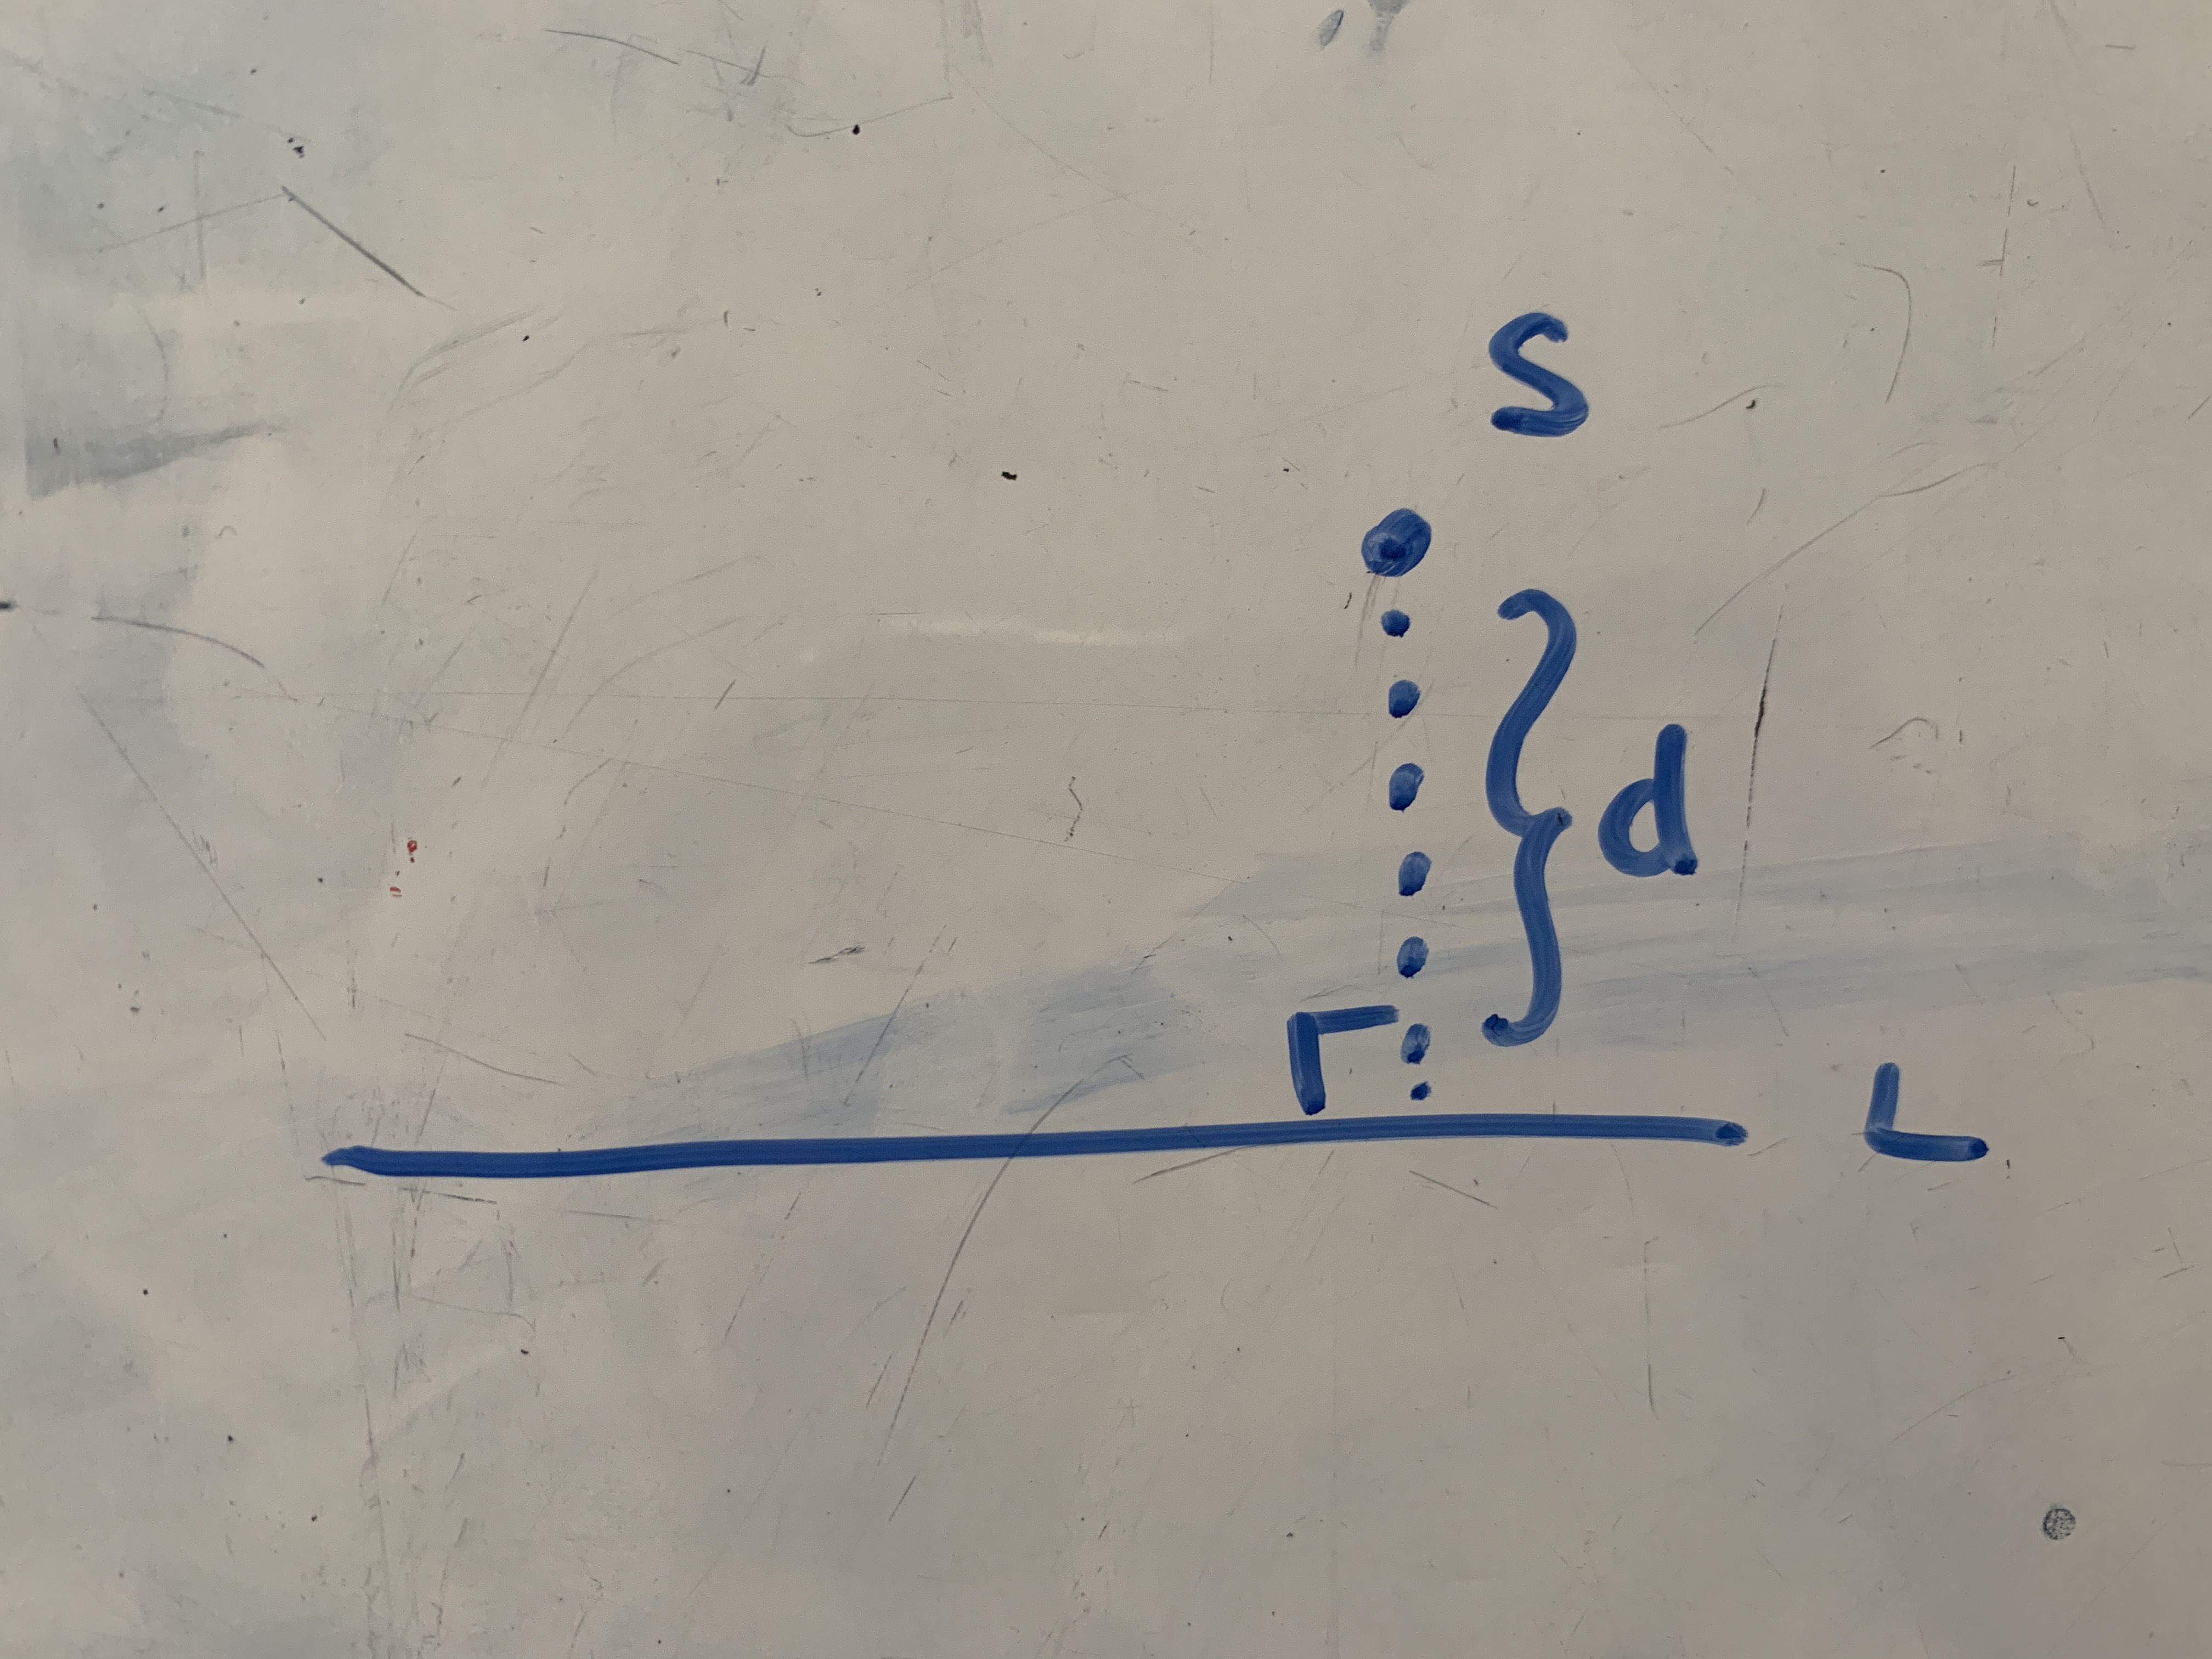 S
d
L